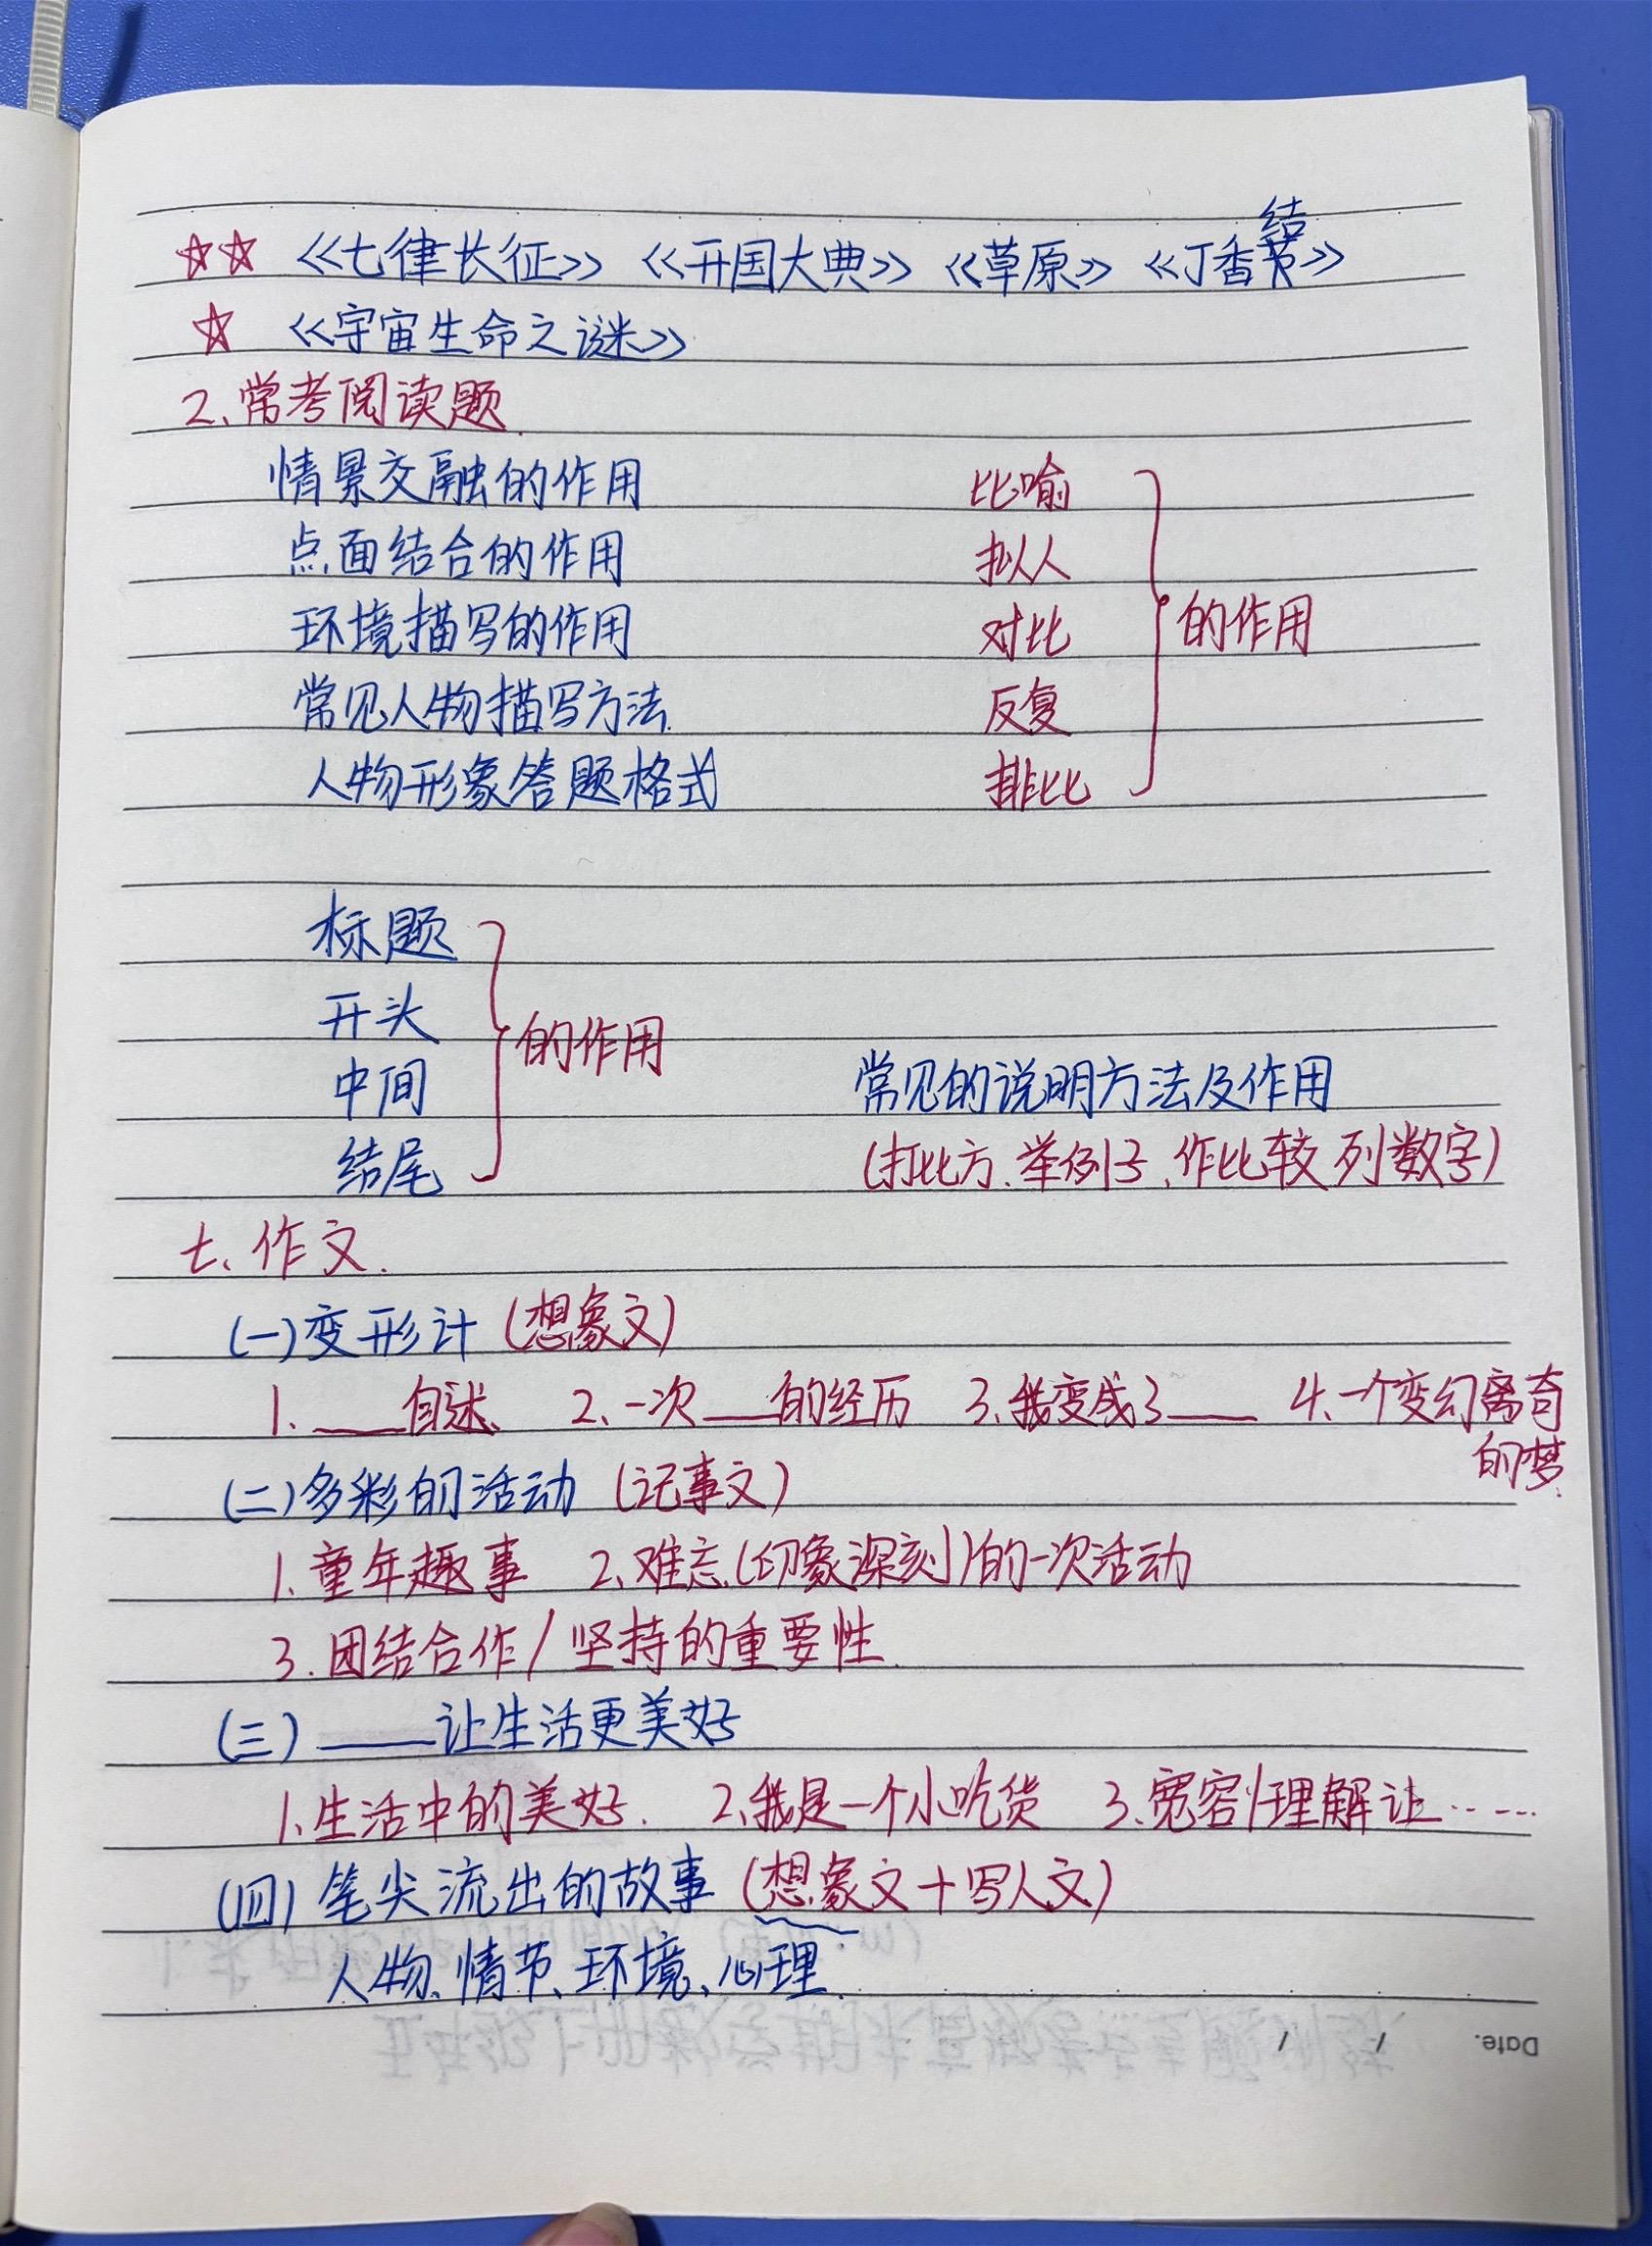 ☆☆ 《七律长征》《开国大典》《草原》《丁香结》
☆ 《宇宙生命之谜》
2、常考阅读题
情景交融的作用 比喻
点面结合的作用 拟人
环境描写的作用 对比 的作用
常见人物描写方法. 反复
人物形象答题格式 排比
标题
开头
的作用
中间 常见的说明方法及作用
结尾 (打比方、举例子、作比较 列数字)
七、作文.
(一)变形计 (想象文)
1、____自述、 2、一次___的经历 3、我变成了____ 4、一个变幻离奇
的梦.
(二)多彩的活动 (记事文)
1、童年趣事 2、难忘(印象深刻)的一次活动
3.团结合作/坚持的重要性.
(三)_____让生活更美好
1、生活中的美好. 2、我是一个小吃货 3、宽容/理解让……
(四)笔尖流出的故事 (想象文+写人文)
人物、情节、环境、心理.
Date. / /